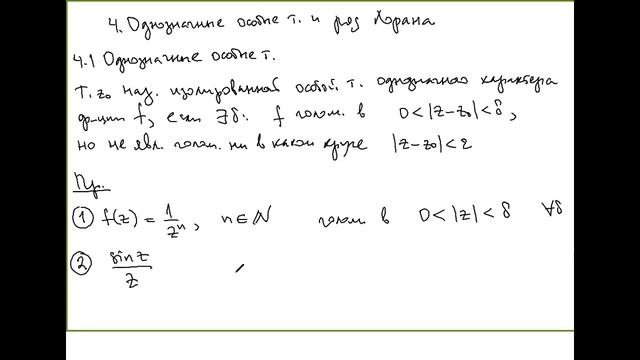 4. Однозначные особые т. и ряд Лорана
4.1 Однозначные особые т.
Т. z₀ наз. изолированной особой т. однозначного характера
ф-ции f, если ∃δ: f голом. в 0<|z-z₀|<δ,
но не явл. голом. ни в каком круге |z-z₀|<ε
Пр.
① f(z) = 1/zⁿ, n∈ℕ голом. в 0<|z|<δ ∀δ
② sin z/z